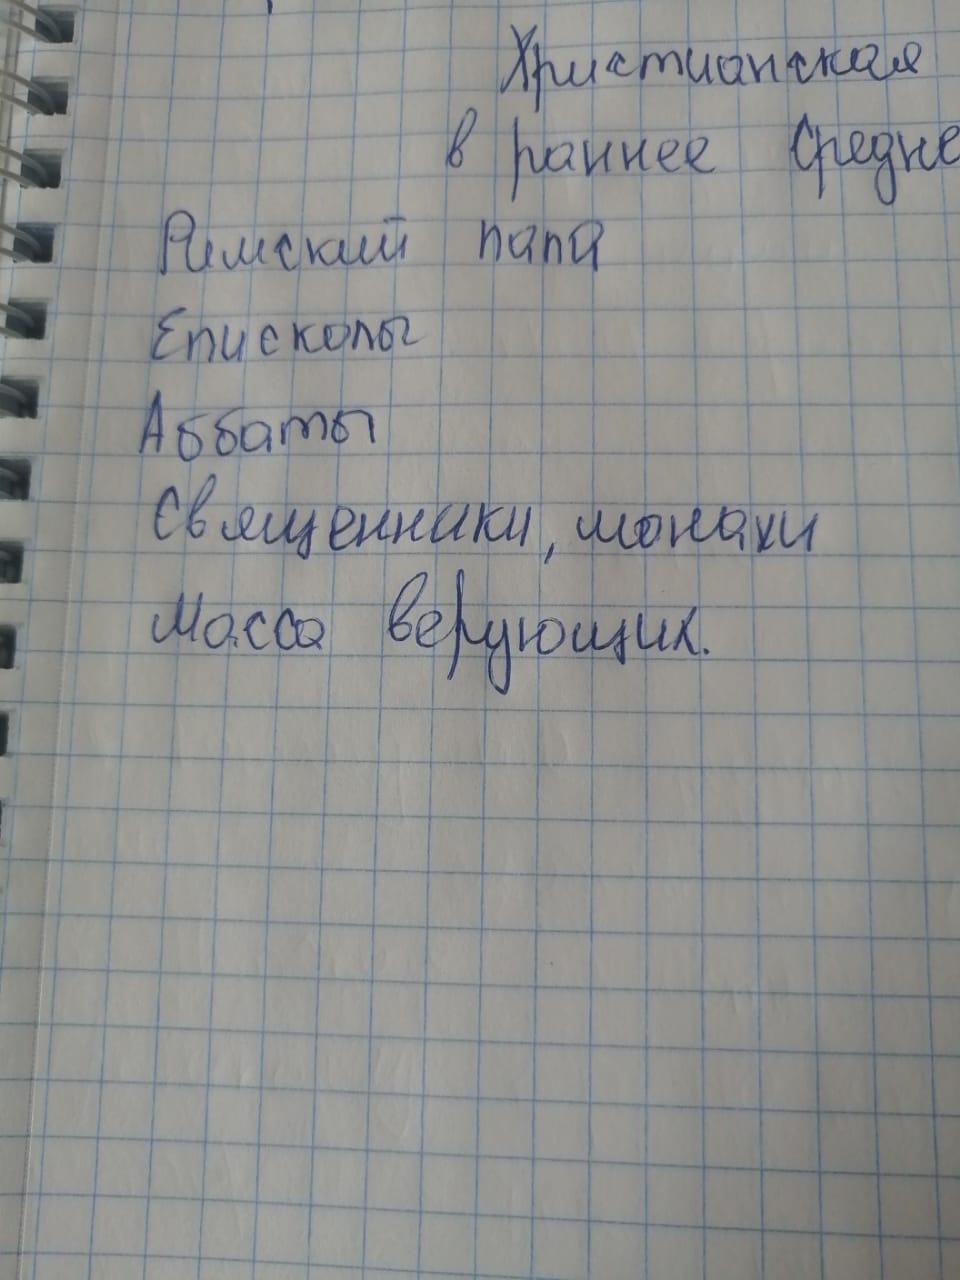 Христианская
в раннее Средне
Римский папа
Епископы
Аббаты
Священники, монахи
Масса верующих.